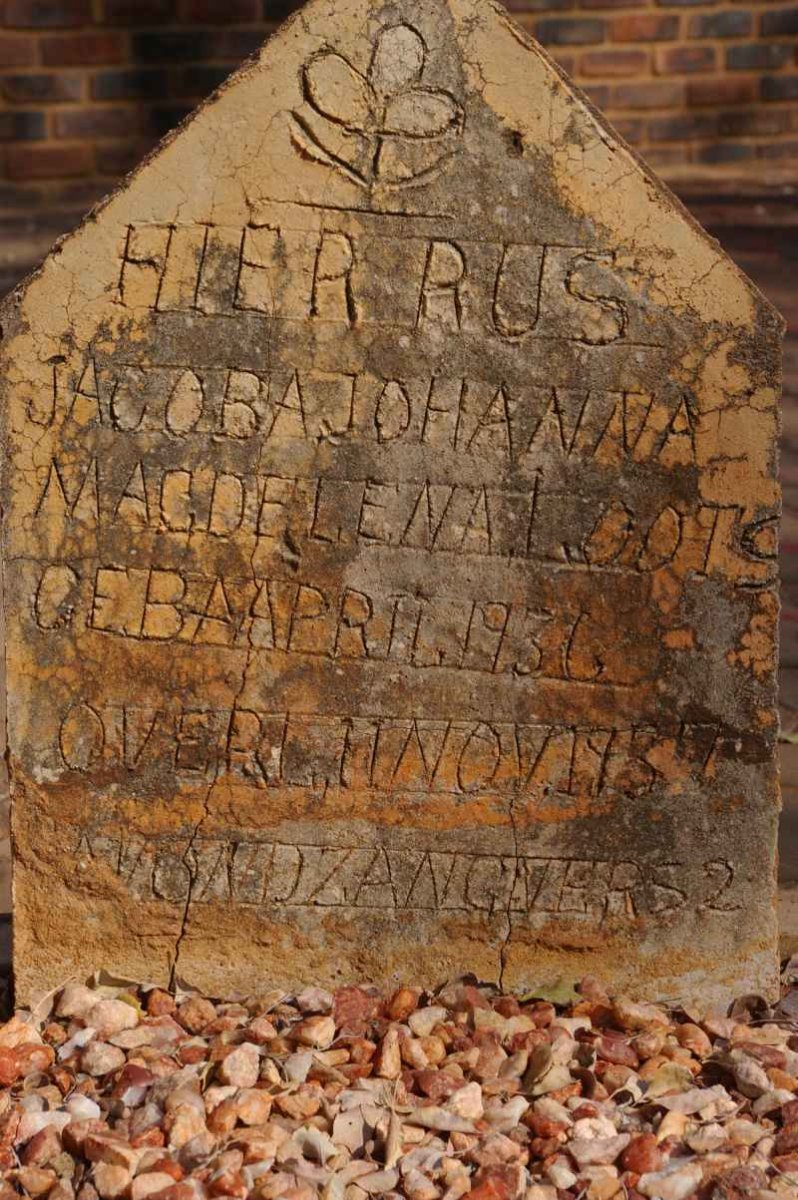 HIER RUS
JACOBA JOHANNA
MAGDELENA LOOTS
GEB APRIL 1936
OVERL 11 NOV 1937
AVONDZANG VERS 2